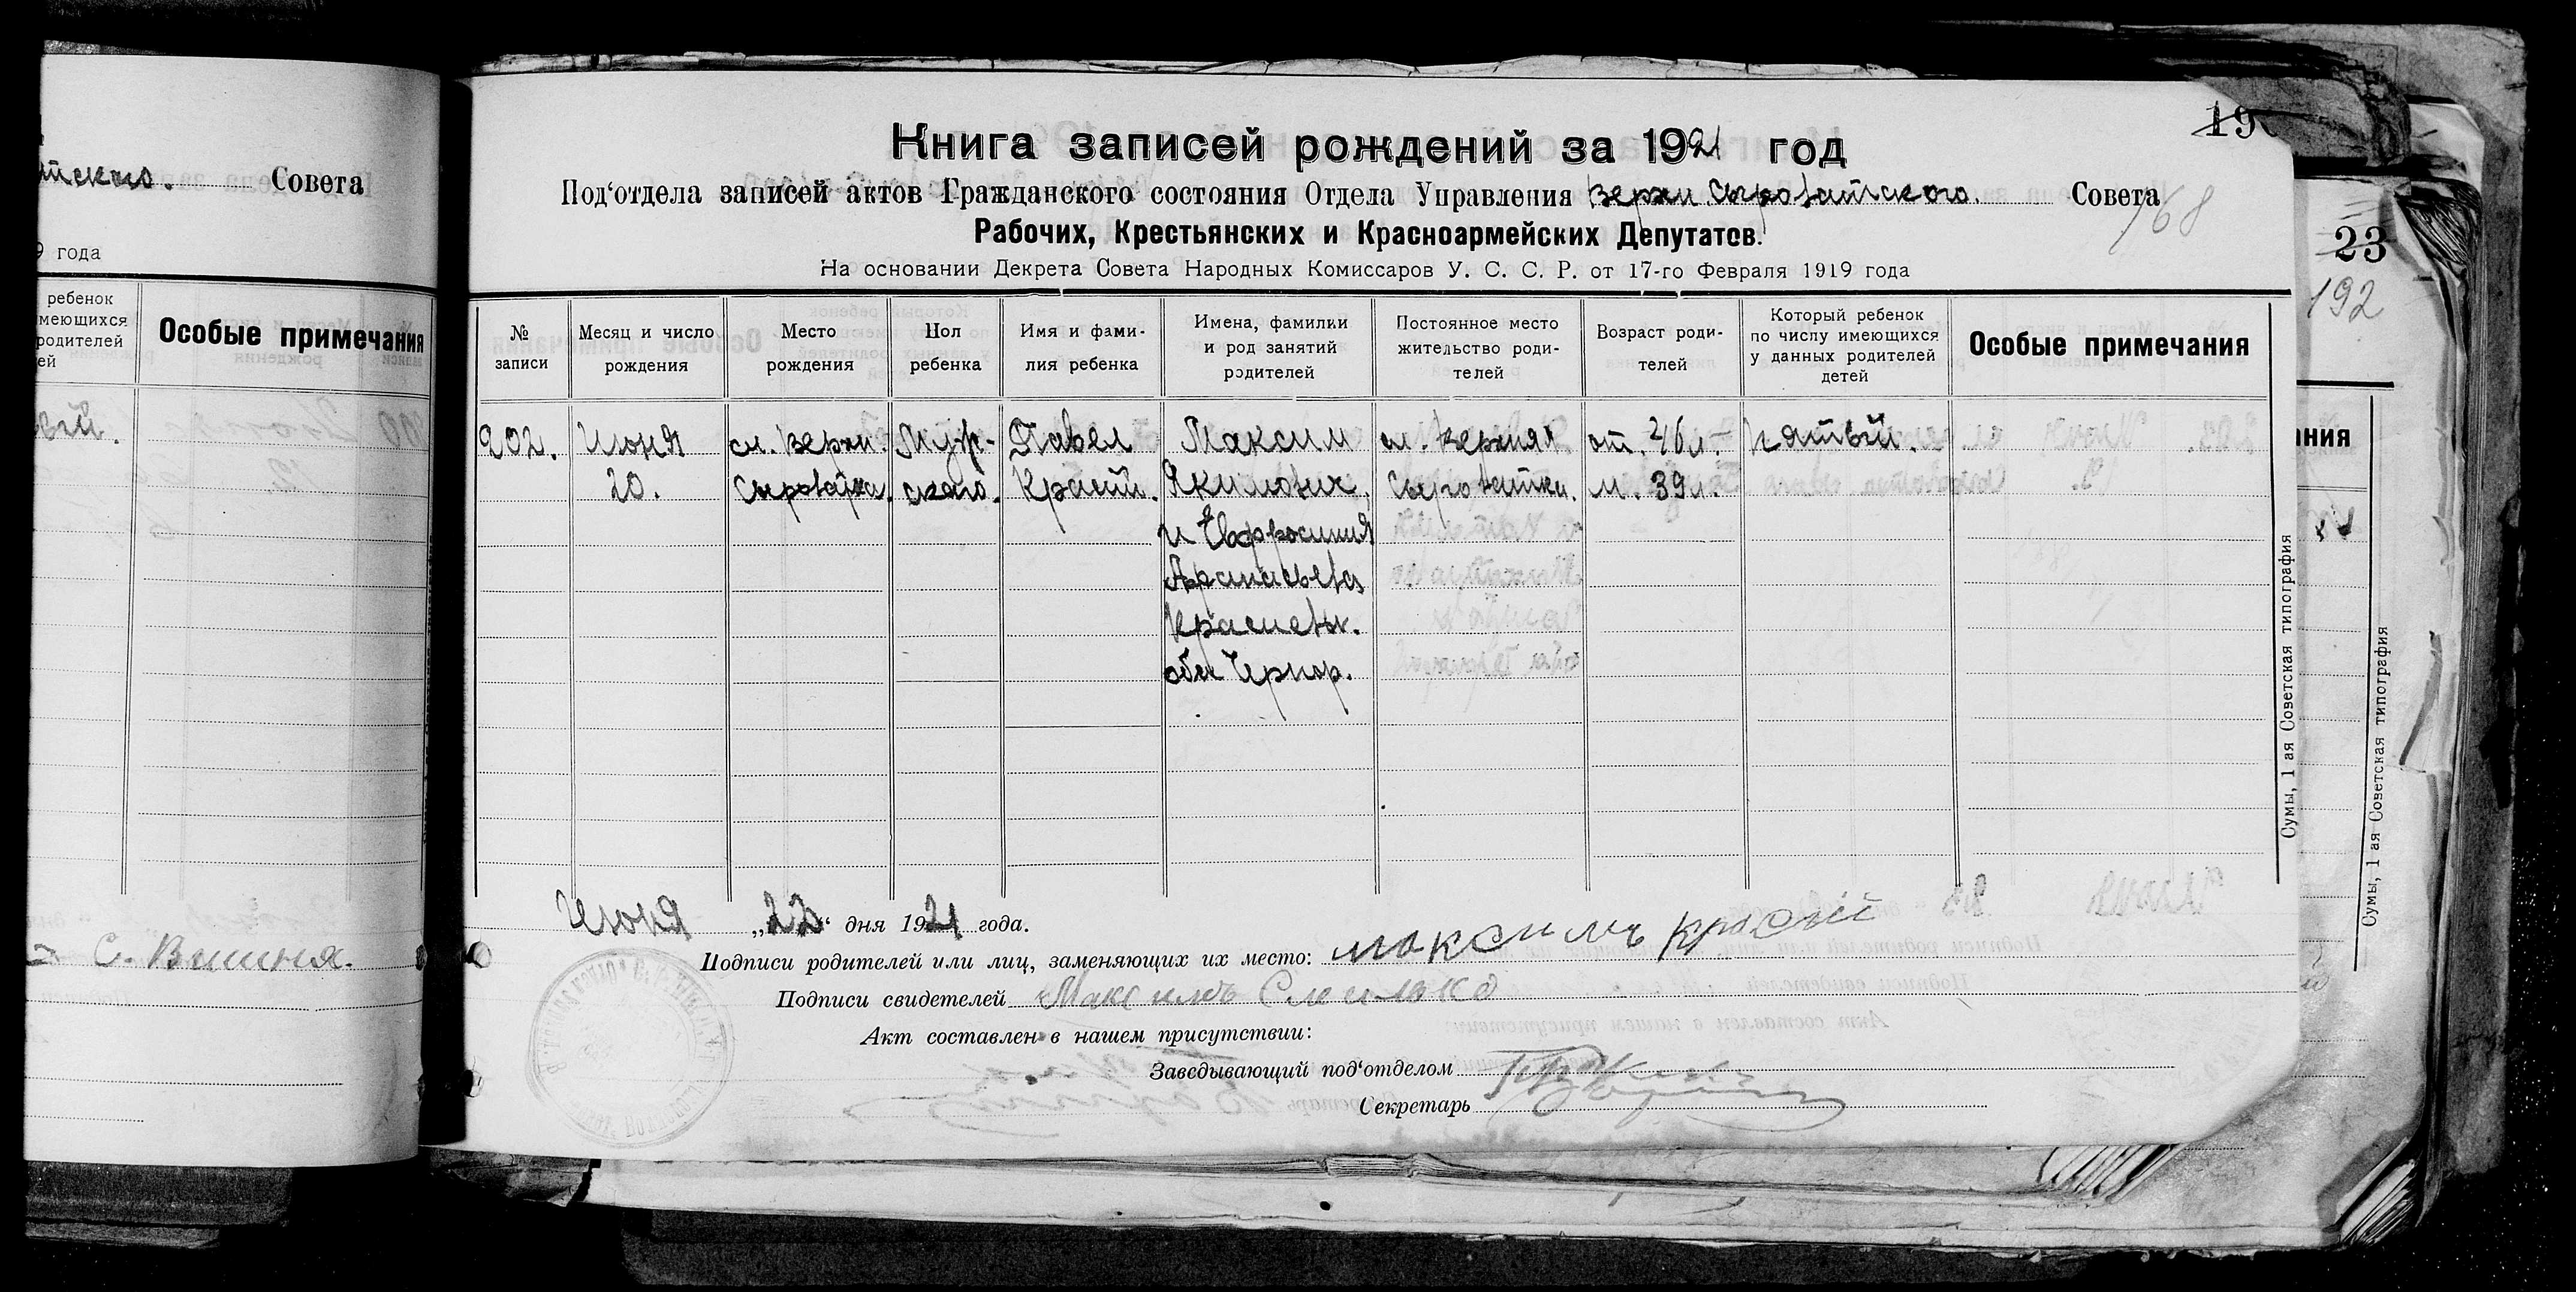 йского. Совета
9 года
ребенок
меющихся
родителей
ей
Особые примечания
С. Вишня.
19
Книга записей рождений за 1921 год
Под‘отдела записей актов Гражданского состояния Отдела Управления Верхн Сыроватского. Совета
168
Рабочих, Крестьянских и Красноармейских Депутатов.
На основании Декрета Совета Народных Комиссаров У. С. С. Р. от 17-го Февраля 1919 года
№ записи
Месяц и число рождения
Место рождения
Пол ребенка
Имя и фами-
лия ребенка
Имена, фамилки
и род занятий
родителей
Постоянное место
жительство роди-
телей
Возраст роди-
телей
Который ребенок
по числу имеющихся
у данных родителей
детей
Особые примечания
202.
Июня
20.
сл. Верхн.
Сыроватка.
Муж-
ского.
Павел
Красн.
Максим
Якимович,
и Евфросиния
Афанасьева
обы Чернор.
сл. Верхняя
Сыроватка.
от. 46 л.
м. 39 л.
Пятый.
Июня „22“ дня 1921 года.
Подписи родителей или лиц, заменяющих их место: максимъ красни
Подписи свидетелей Максимъ
Акт составлен в нашем присутствии:
Заведывающий под‘отделом
Секретарь
Сумы, 1 ая Советская типография
23
192
ания
Сумы, 1 ая Советская типография